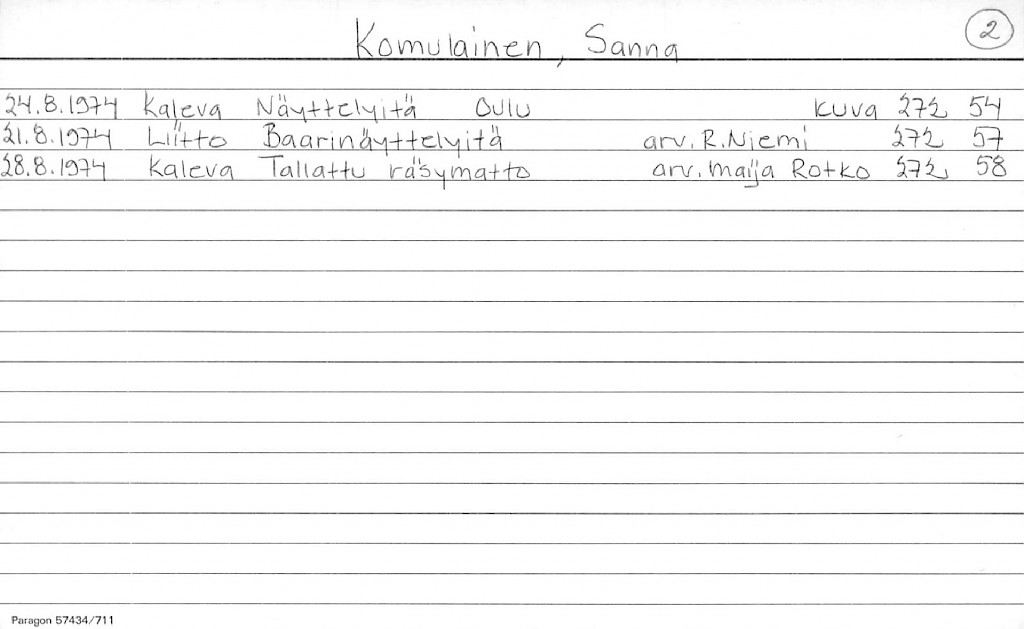 Komulainen, Sanna 2
24.8.1974 Kaleva Näyttelyitä Oulu kuva 272 54
21.8.1974 Liitto Baarinäyttelyitä arv. R. Niemi 272 57
28.8.1974 Kaleva Tallattu räsymatto arv. Maija Rotko 272 58
Paragon 57434/711